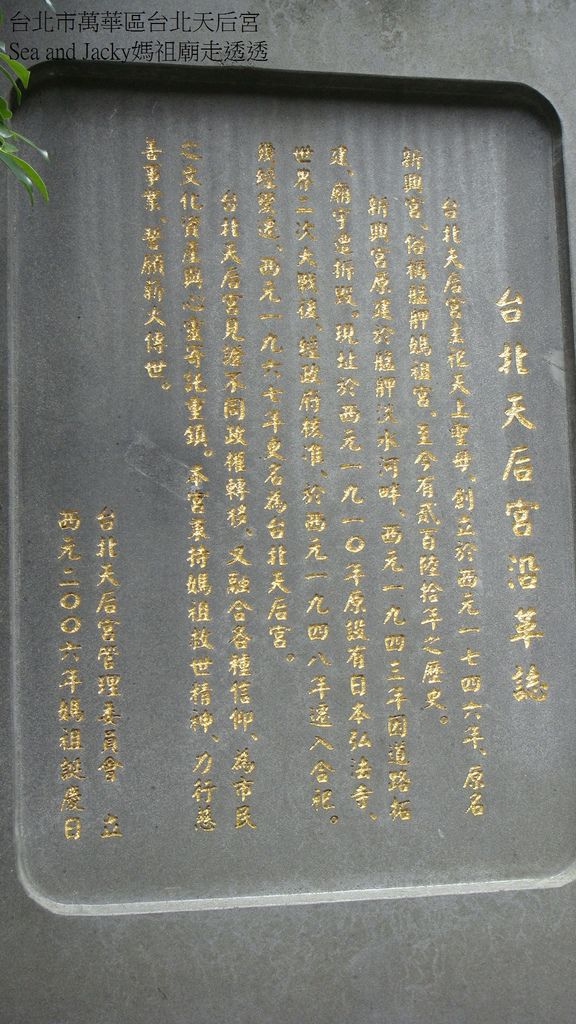 台北市萬華區台北天后宮
Sea and Jacky媽祖廟走透透
台北天后宮沿革誌
台北天后宮主祀天上聖母、創立於西元一七四六年、原名
新興宮、俗稱艋舺媽祖宮、至今有貳百陸拾年之歷史。
新興宮原建於艋舺淡水河畔、西元一九四三年因道路拓
建、廟宇遭拆毀。現址於西元一九一〇年原設有日本弘法寺、
世界二次大戰後、經政府核准、於西元一九四八年遷入合祀。
幾經變遷、西元一九六七年更名為台北天后宮。
台北天后宮見證不同政權轉移、又融合各種信仰、為市民
之文化資產與心靈寄託重鎮。本宮秉持媽祖救世精神、力行慈
善事業、誓願薪火傳世。
台北天后宮管理委員會 立
西元二〇〇六年媽祖誕慶日